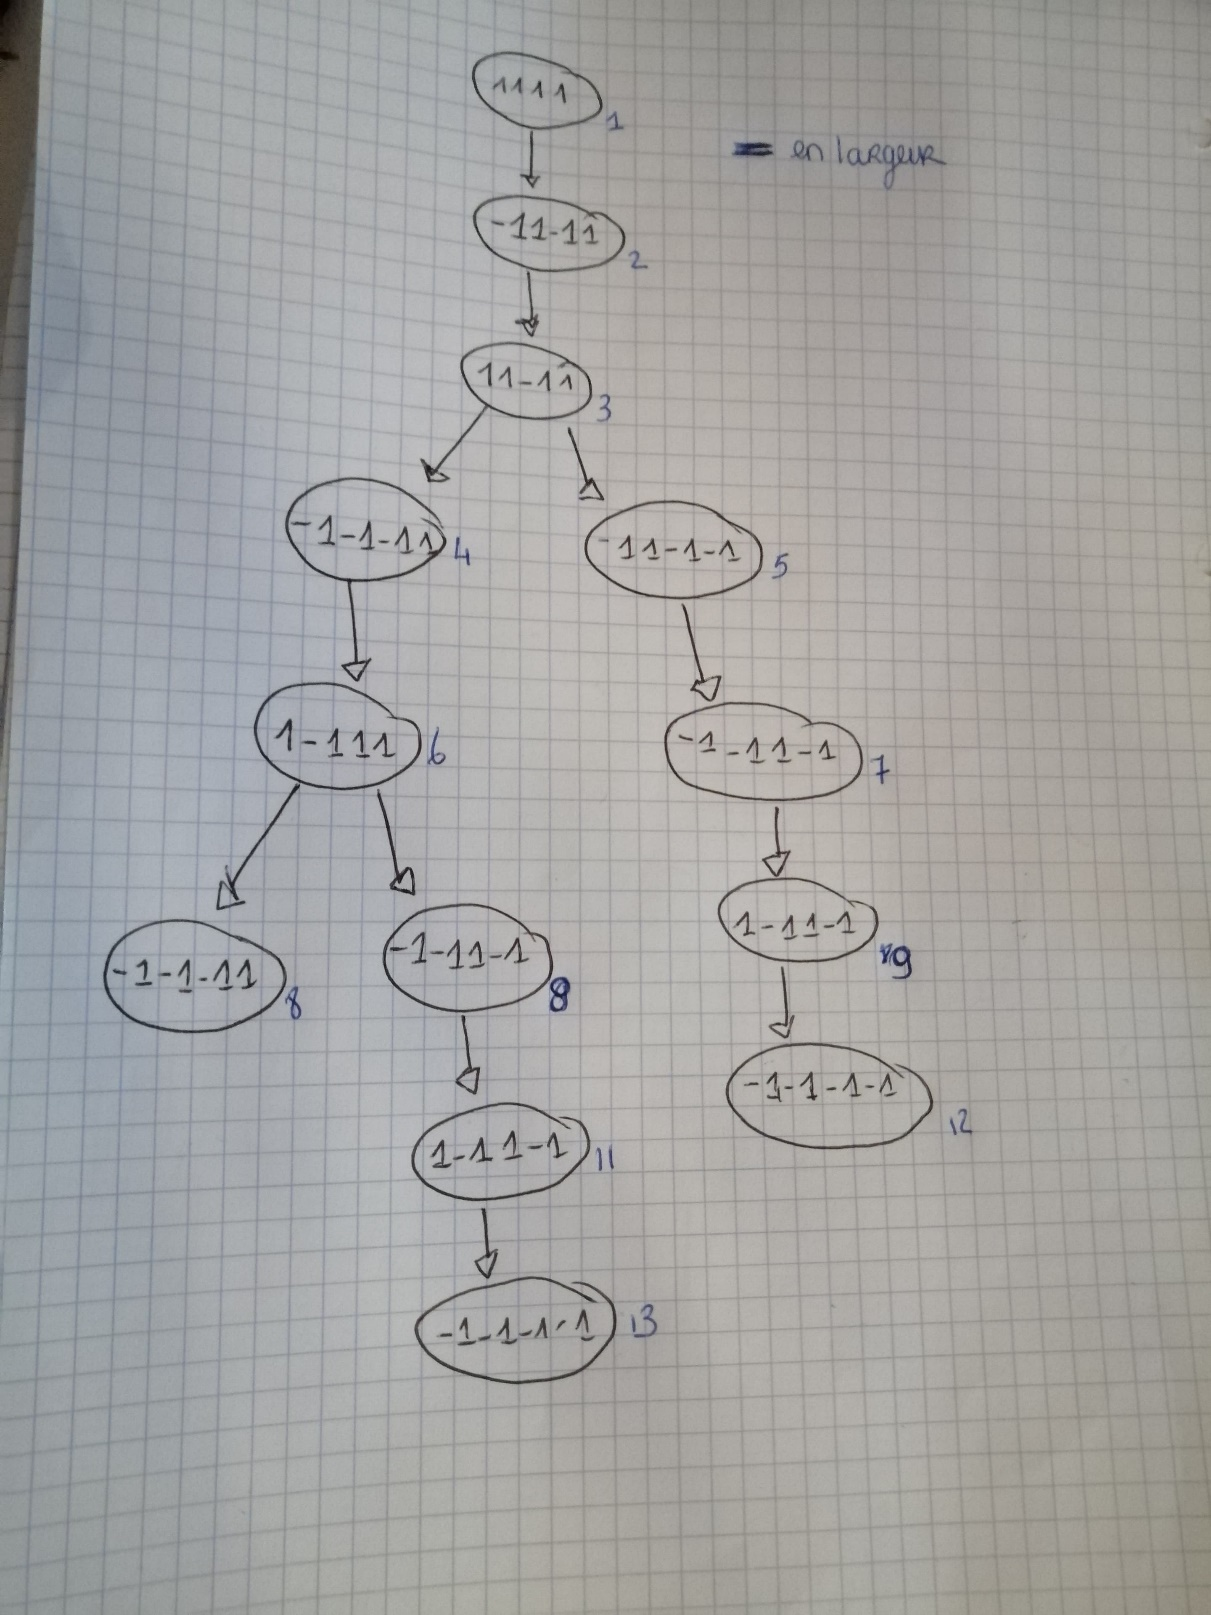 1111
1
= en largeur
-11-11
2
11-11
3
-1-1-11
4
-11-1-1
5
1-111
6
-1-11-1
7
-1-1-11
8
-1-11-1
8
1-11-1
9
1-11-1
11
-1-1-1-1
12
-1-1-1-1
13